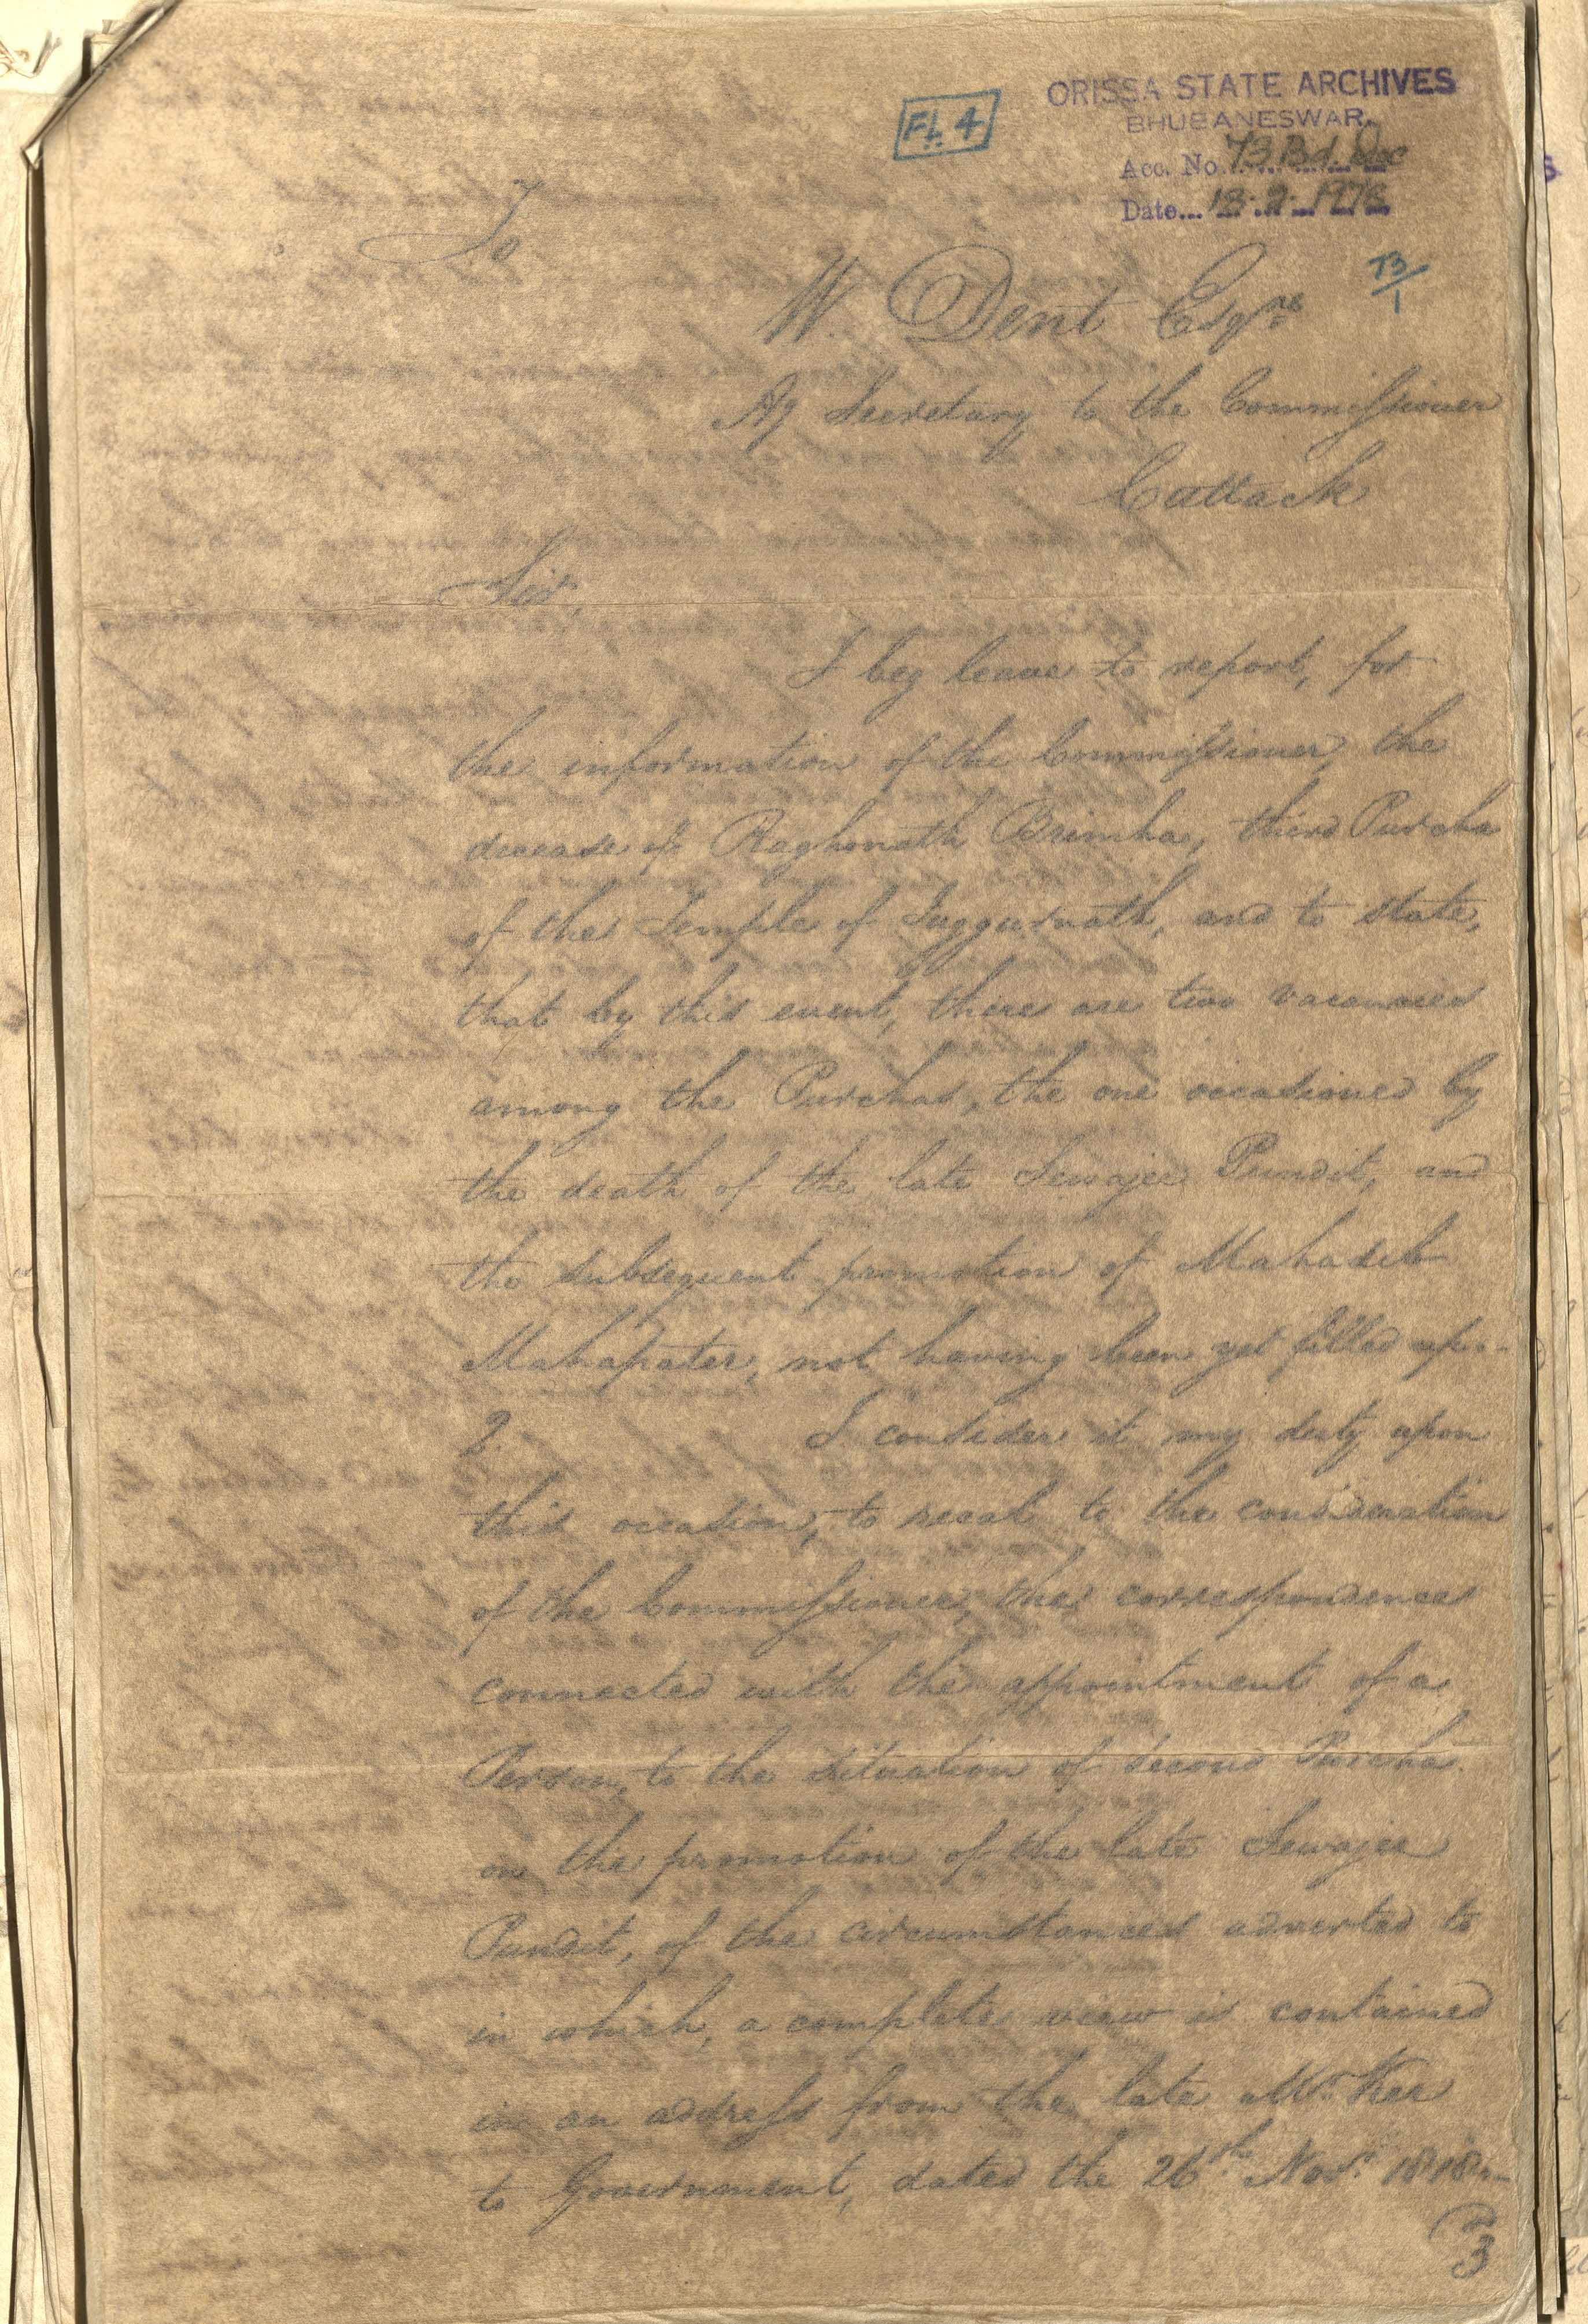 Fl. 4
ORISSA STATE ARCHIVES
BHUBANESWAR.
Acc. No. 73 Bd. Doc
Date... 18-2-1978
73/1
To
W. Dent Esqre
Ag Secretary to the Commissioner
Cuttack
Sir,
I beg leave to report, for
the information of the Commissioner, the
decease of Raghonath Brimha, third Purcha
of the Temple of Juggurnath, and to state,
that by this event, there are two vacancies
among the Purchas, the one occasioned by
the death of the late Sewajee Pundit, and
the subsequent promotion of Mahadeb
Mahapater, not having been yet filled up.-
2. I consider it my duty upon
this occasion, to recal to the consideration
of the Commissioner, the correspondence
connected with the appointment of a
Person, to the situation of second Purcha
on the promotion of the late Sewajee
Pundit, of the circumstances adverted to
in which, a complete view is contained
in an address from the late Mr. Ker
to Government, dated the 26th Novr. 1818.-
3